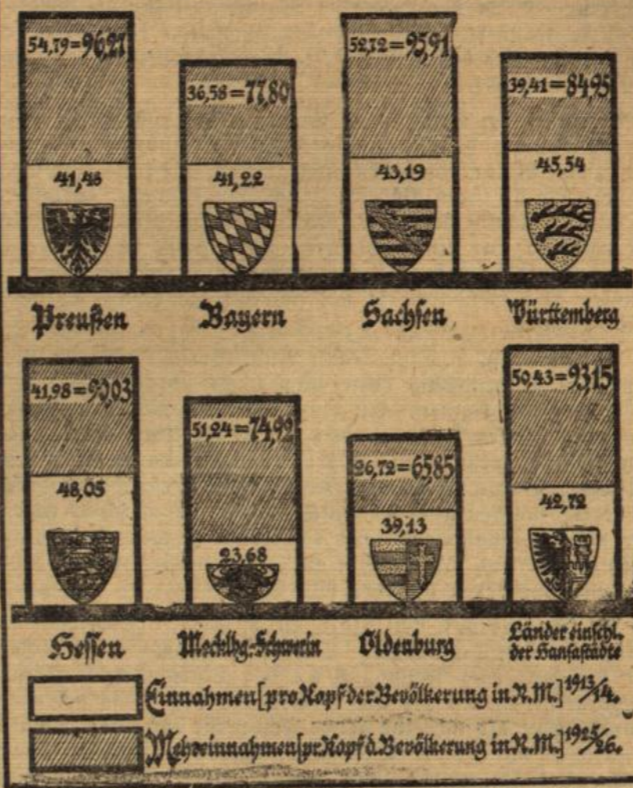 54,79=96,27
36,58=77,80
52,72=95,91
39,41=84,95
41,48
41,22
43,19
45,54
Preußen
Bayern
Sachsen
Württemberg
41,98=90,03
51,24=74,92
26,72=65,85
50,43=93,15
48,05
23,68
39,13
42,72
Hessen
Mecklbg.-Schwerin
Oldenburg
Länder einschl.
der Hansastädte
Einnahmen [pro Kopf der Bevölkerung in R.M.] 1913/14.
Mehreinnahmen [pr. Kopf d. Bevölkerung in R.M.] 1925/26.